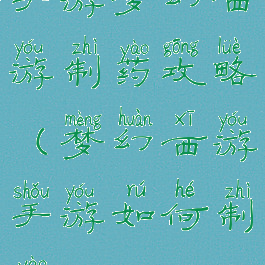 手 游 梦 幻 西
yóu zhì yào gōng lüè
游 制 药 攻 略
mèng huàn xī yóu
( 梦 幻 西 游
shǒu yóu rú hé zhì
手 游 如 何 制
yào